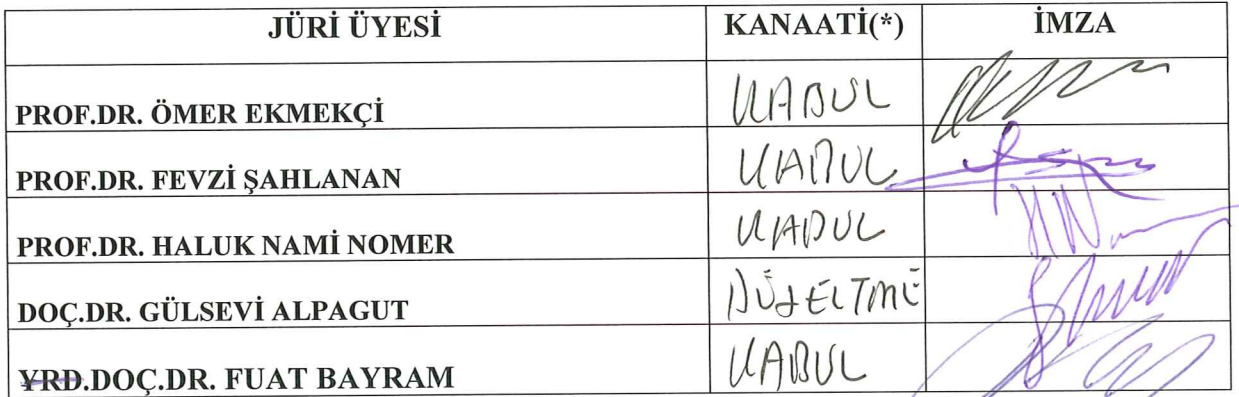 JÜRİ ÜYESİ KANAATİ(*) İMZA
PROF.DR. ÖMER EKMEKÇİ KABUL
PROF.DR. FEVZİ ŞAHLANAN KABUL
PROF.DR. HALUK NAMİ NOMER KABUL
DOÇ.DR. GÜLSEVİ ALPAGUT DÜZELTME
YRD.DOÇ.DR. FUAT BAYRAM KABUL